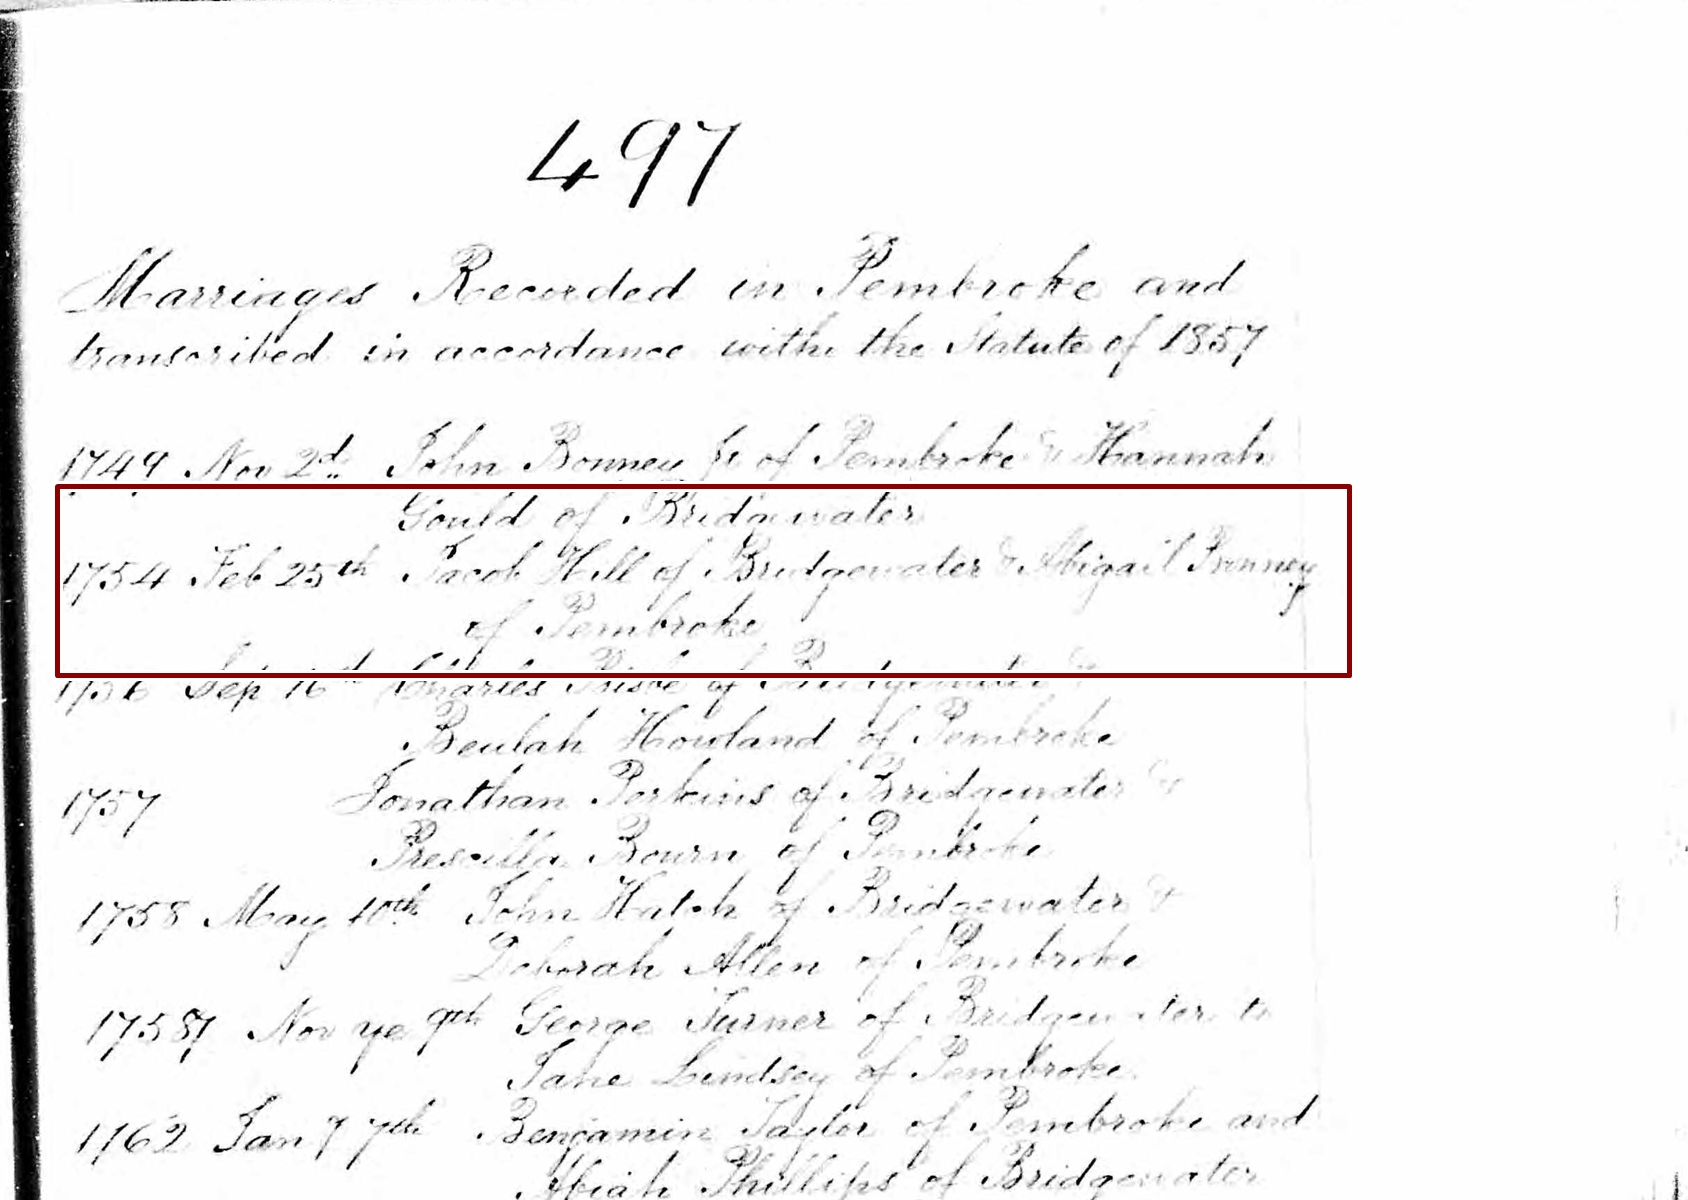 497
Marriages Recorded in Pembroke and
transcribed in accordance with the Statute of 1857
1749 Nov 2d John Bonney Jr of Pembroke & Hannah
Gould of Bridgewater
1754 Feb 25th Jacob Hill of Bridgewater & Abigail Bonney
of Pembroke
1756 Sep 16th Charles Bisbe of Bridgewater &
Beulah Howland of Pembroke
1757 Jonathan Perkins of Bridgewater &
Prescilla Bourn of Pembroke
1758 May 10th John Hatch of Bridgewater &
Deborah Allen of Pembroke
Nov ye 9th George Turner of Bridgewater to
Jane Lindsey of Pembroke
1762 Jan 7th Benjamin Taylor of Pembroke and
Abiah Phillips of Bridgewater